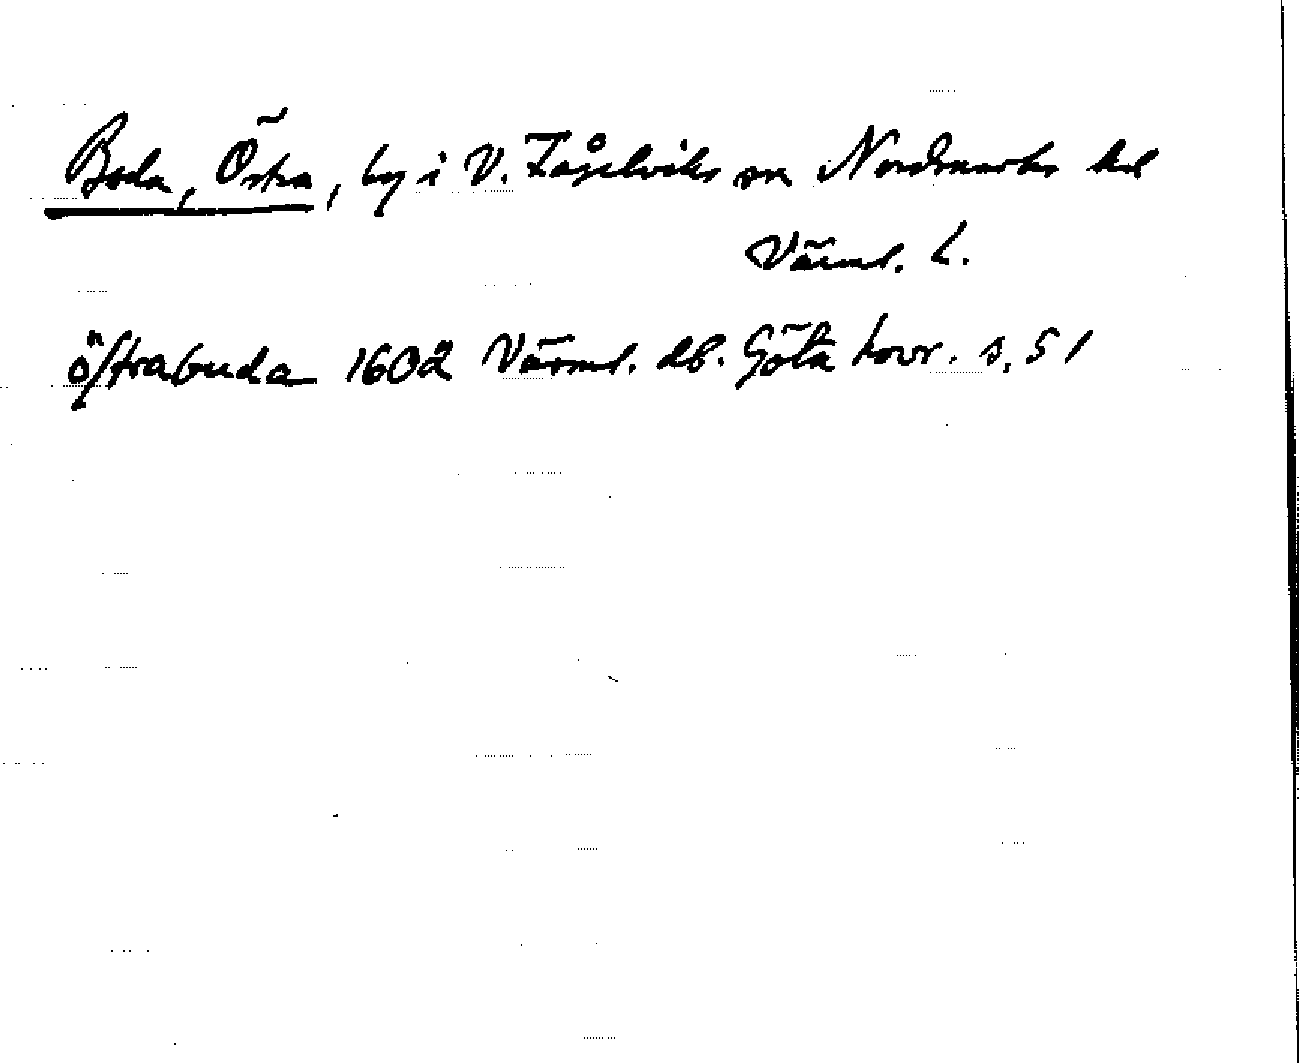 Boda, Östra, by i V. Fågelviks sn Nordmarks hd
Värml. l.
öſtrabuda 1602 Värml. db. Göta hovr. s. 51